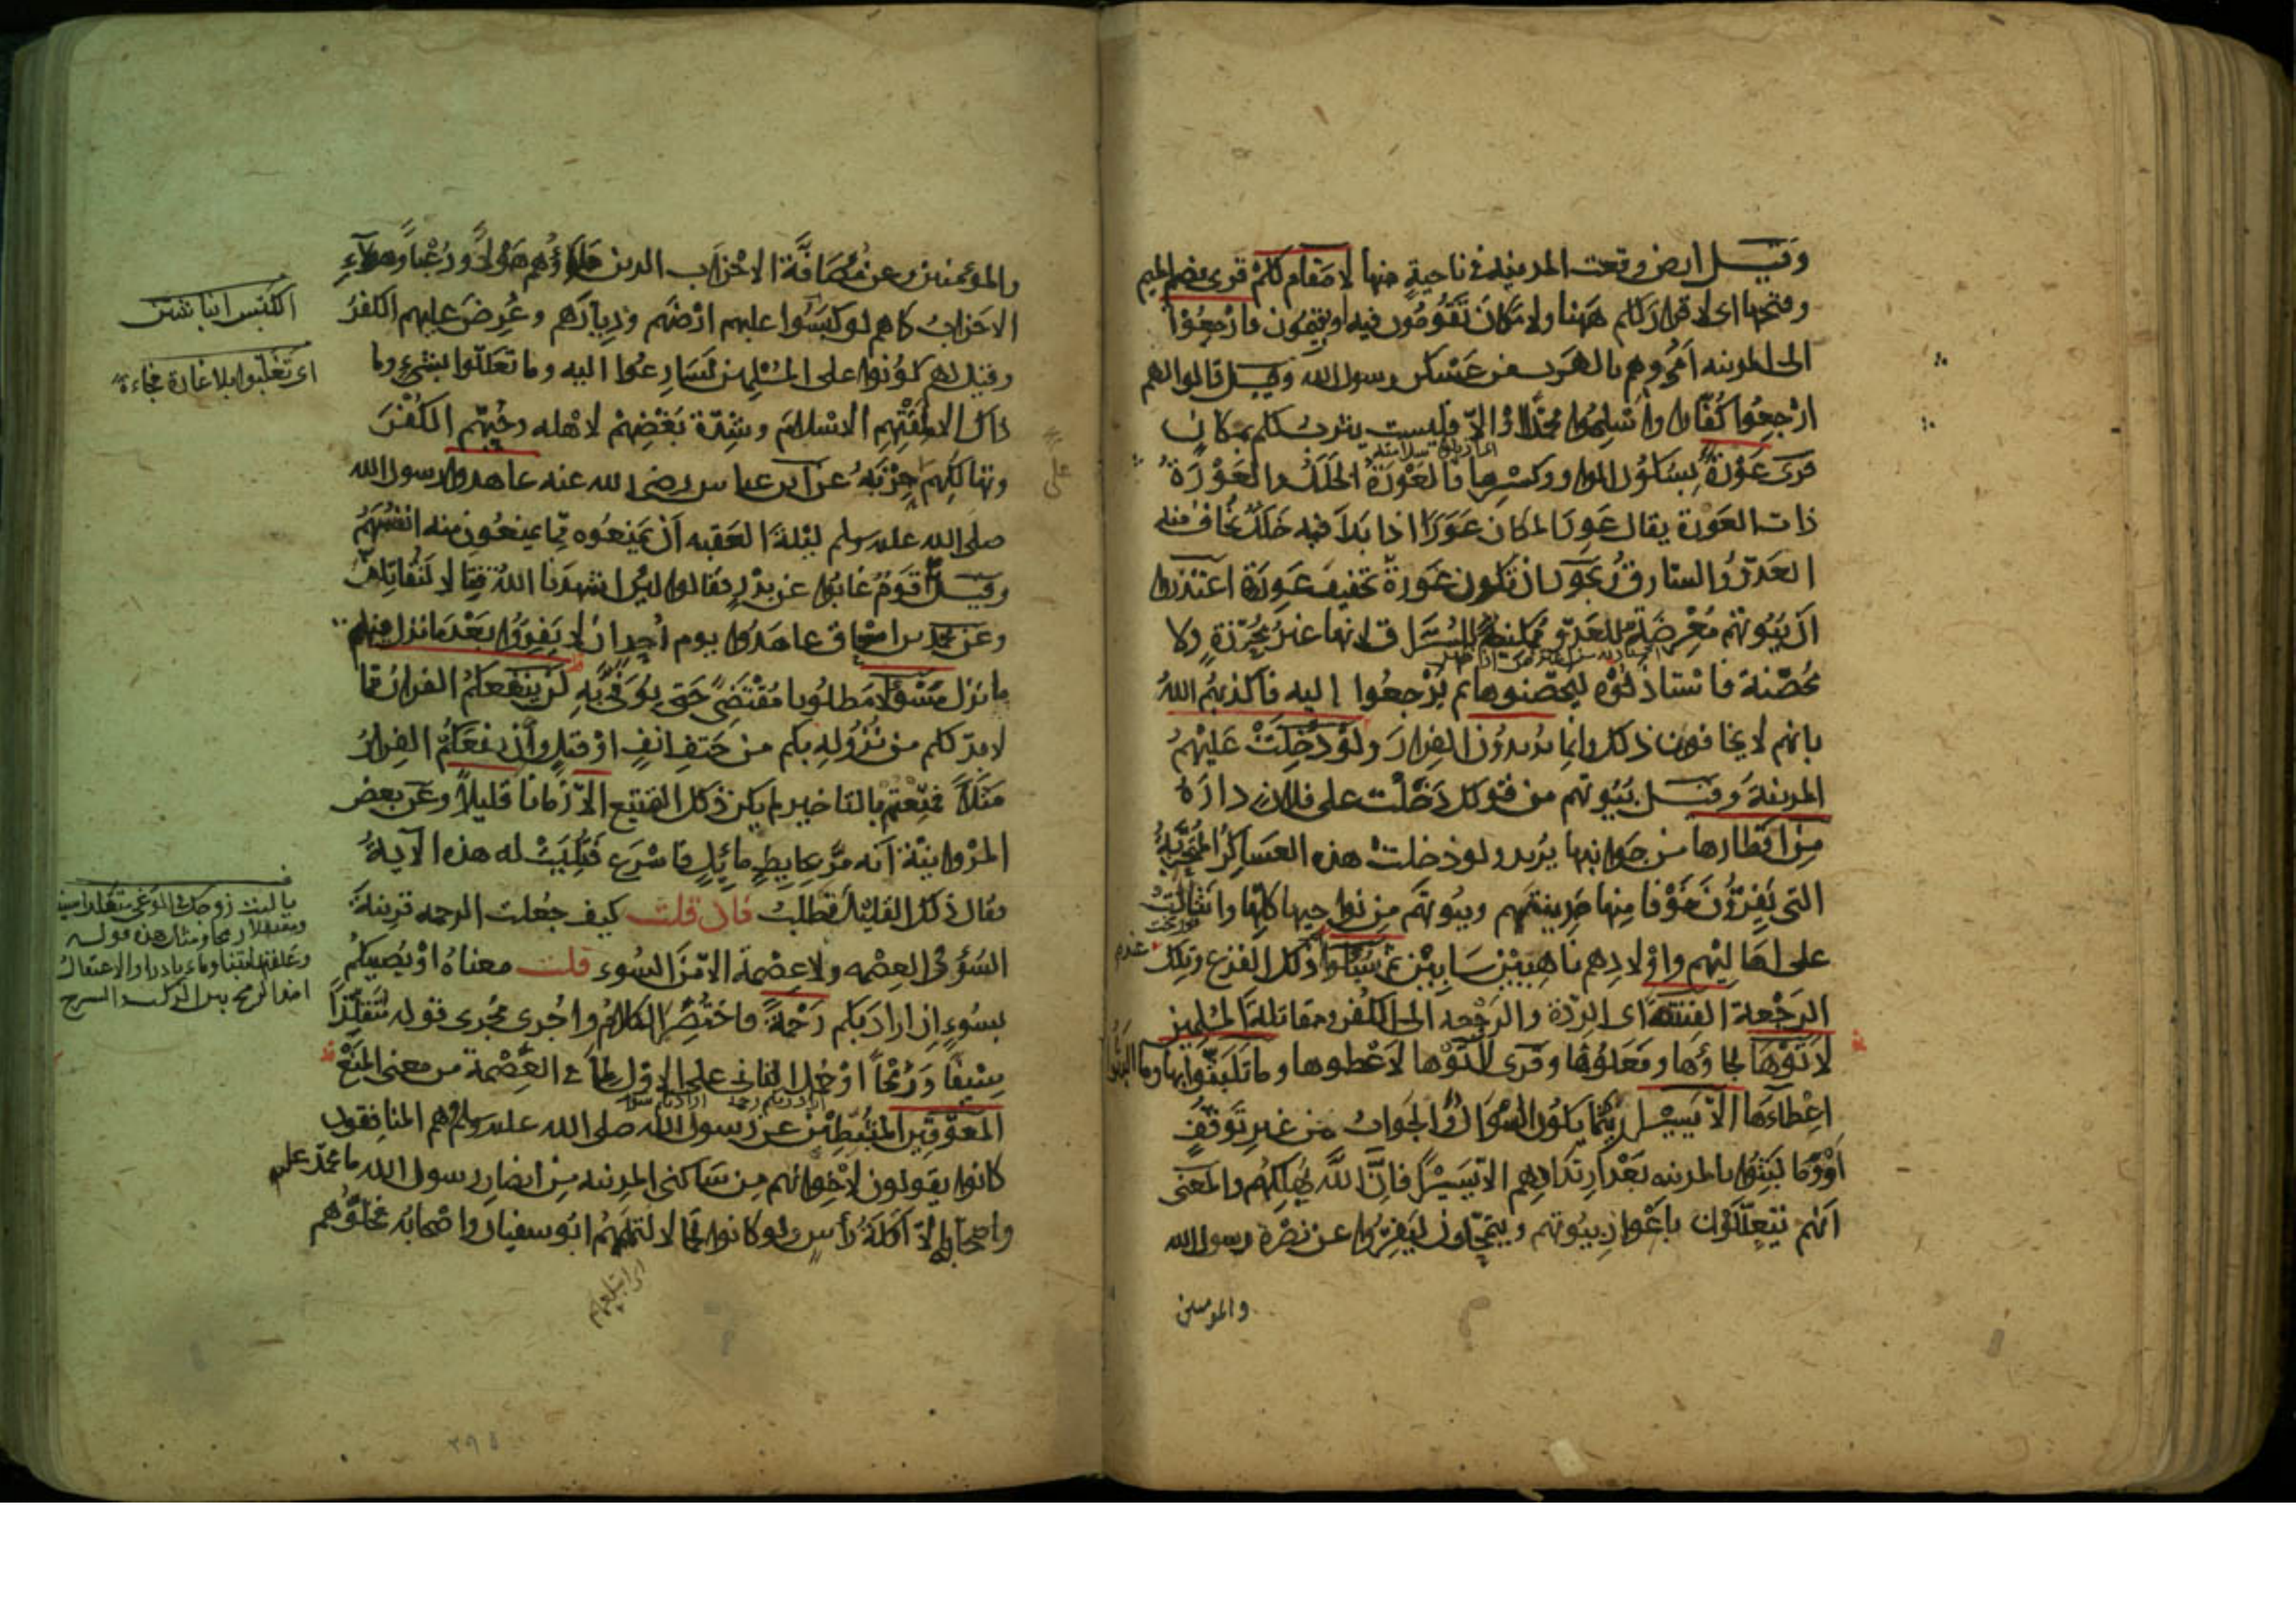 وقيل ارض وقعت المدينة في ناحية منها لا مقام لكم قرئ بضم الميم
وفتحها اى لا قرار لكم ههنا ولا مكان تقومون فيه او تقيمون فارجعوا
الى المدينه امروهم بالهرب من عسكر رسول الله وقيل قالوا لهم
ارجعوا كفارا واسلموا محمدا والا فليست يثرب لكم بمكان
قرئ عورة بسكون الواو وكسرها فالعورة الخلل والعورة
ذات العورة يقال عور المكان عورا اذا بدا فيه خلل يخاف منه
العدو والسارق ويجوز ان تكون عورة تخفيف عورة اعتذروا
ان بيوتهم معرضة للعدو ممكنة للسراق لانها غير محرزة ولا
محصنة فاستاذنوه ليحصنوها ثم يرجعوا اليه فاكذبهم الله
بانهم لا يخافون ذلك وانما يريدون الفرار ولو دخلت عليهم
المدينة وقيل بيوتهم من قولك دخلت على فلان داره
من اقطارها من جوانبها يريد ولو دخلت هذه العساكر المتحزبة
التى يفرون خوفا منها مدينتهم وبيوتهم من نواحيها كلها وانثالت
على اهاليهم واولادهم ناهبين سابين ثم سئلوا عند ذلك الفزع وتلك
الرجعة الفتنة اى الردة والرجعه الى الكفر ومقاتلة المسلمين
لاتوها لجاؤها وفعلوها وقرئ لآتوها لاعطوها وما تلبثوا بها وما البثوا
اعطاءها الا يسيرا ريثما يكون السؤال والجواب من غير توقف
او وما لبثوا بالمدينه بعد ارتدادهم الا يسيرا فان الله يهلكهم والمعنى
انهم يتعللون باعوار بيوتهم ويتمحلون ليفروا عن نصرة رسول الله
والمومنين
والمؤمنين وعن مصافة الاحزاب الذين ملاؤهم هولا ورعبا وهؤلاء
الاحزاب كما هم لو كبسوا عليهم ارضهم وديارهم وعرض عليهم الكفر
وقيل لهم كونوا على المسلمين لسارعوا اليه وما تعللوا بشيء وما
ذاك الا لمقتهم الاسلام وشدة بغضهم لاهله وحبهم الكفر
وتهالكهم على حزبه عن ابن عباس رضى الله عنه عاهدوا رسول الله
صلى الله عليه وسلم ليلة العقبه ان يمنعوه مما يمنعون منه انفسهم
وقيل قوم غابوا عن بدر فقالوا لئن اشهدنا الله قتالا لنقاتلن
وعن محمد بن اسحاق عاهدوا يوم احد ان لا يفروا بعد ما نزل فيهم
ما نزل مسؤلا مطلوبا مقتضى حتى يوفى به لن ينفعكم الفرار مما
لا بد لكم من نزوله بكم من حتف انف او قتل وان نفعكم الفرار
مثلا فمتعتم بالتاخير لم يكن ذلك التمتيع الا زمانا قليلا وعن بعض
المروانية انه مر بحايط مائل فاسرع فتليت له هذه الآية
فقال ذلك القليل نطلب فان قلت كيف جعلت الرحمه قرينة
السوء في العصمه ولا عصمة الا من السوء قلت معناه او يصيبكم
بسوء ان اراد بكم رحمة فاختصر الكلام واجرى مجرى قوله متقلدا
سيفا ورمحا او حمل الثانى على الاول لما في العصمة من معنى المنع
المعوقين المثبطين عن رسول الله صلى الله عليه وسلم وهم المنافقون
كانوا يقولون لاخوانهم من ساكنى المدينه من انصار رسول الله ما محمد
واصحابه الا اكلة رأس ولو كانوا لحما لالتهمهم ابو سفيان واصحابه فخلوهم
اى ابتلعهم
اى تغلبوا بلا غارة فجاءة
يا ليت زوجك في الوغى متقلدا سيفا
علفتها تبنا وماء باردا والاعتقال
٢٩٥